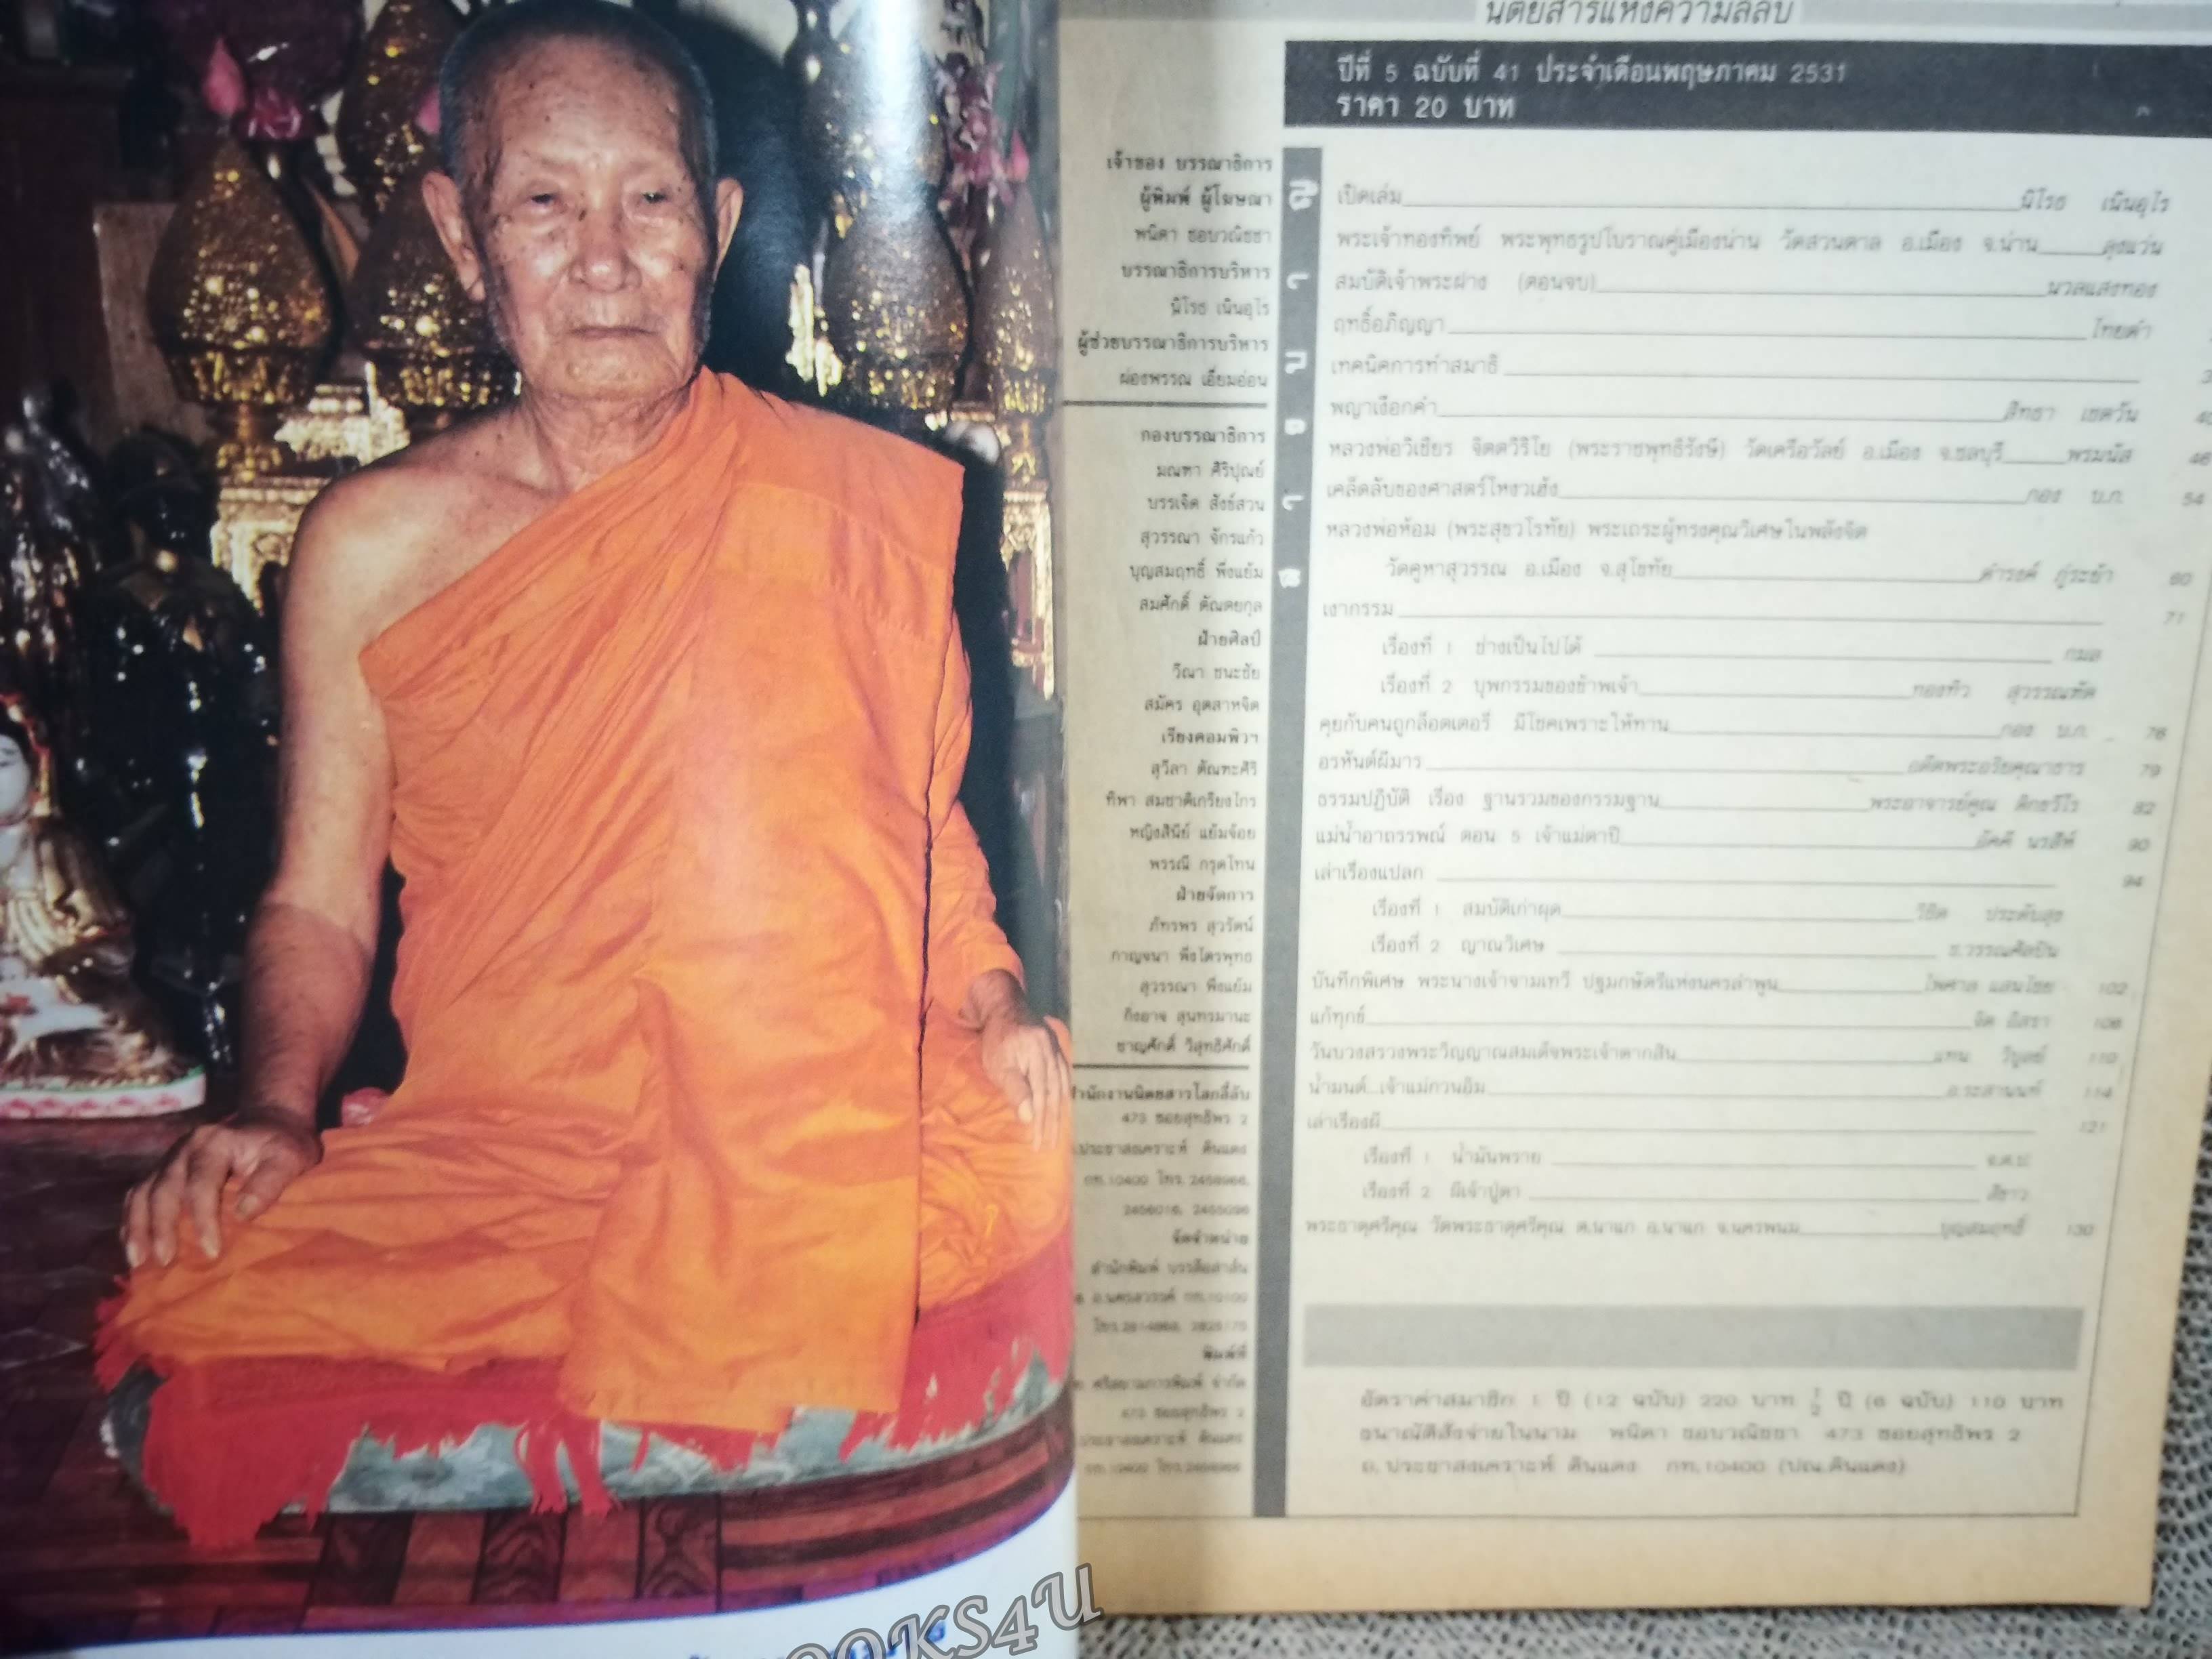 นิตยสารแห่งความลี้ลับ
ปีที่ 5 ฉบับที่ 41 ประจำเดือนพฤษภาคม 2531
ราคา 20 บาท
เจ้าของ บรรณาธิการ
ผู้พิมพ์ ผู้โฆษณา
พนิดา ชอบวณิชชา
บรรณาธิการบริหาร
นิโรธ เนินอุไร
ผู้ช่วยบรรณาธิการบริหาร
ผ่องพรรณ เอี่ยมอ่อน
กองบรรณาธิการ
มณฑา ศิริปุณย์
บรรเจิด สังข์สวน
สุวรรณา จักรแก้ว
บุญสมฤทธิ์ พึ่งแย้ม
สมศักดิ์ ตัณตยกุล
ฝ่ายศิลป์
วีณา ชนะชัย
สมัคร อุตสาหจิต
เรียงคอมพิวฯ
สุวิลา ตัณฑะศิริ
ทิพา สมชาติเกรียงไกร
หญิงสินีย์ แย้มจ้อย
พรรณี กรุดโทน
ฝ่ายจัดการ
ภัทรพร สุวรัตน์
กาญจนา พึ่งโตรพุทธ
สุวรรณา พึ่งแย้ม
กิ่งอาจ สุนทรมานะ
ชาญศักดิ์ วิสุทธิศักดิ์
สำนักงานนิตยสารโลกลี้ลับ
473 ซอยสุทธิพร 2
ประชาสงเคราะห์ ดินแดง
กท.10400 โทร.
จัดจำหน่าย
พิมพ์ที่
473 ซอยสุทธิพร 2
ประชาสงเคราะห์ ดินแดง
กท.10400
สารบาญ
เปิดเล่ม นิโรธ เนินอุไร
พระเจ้าทองทิพย์ พระพุทธรูปโบราณคู่เมืองน่าน วัดสวนตาล อ.เมือง จ.น่าน ลุงแว่น
สมบัติเจ้าพระฝาง (ตอนจบ) นวลแสงทอง
ฤทธิ์อภิญญา ไทยดำ
เทคนิคการทำสมาธิ
พญาเงือกคำ สิทธา เชตวัน
หลวงพ่อวิเชียร จิตตวิริโย (พระราชพุทธิรังษี) วัดเครือวัลย์ อ.เมือง จ.ชลบุรี พรมนัส 46
เคล็ดลับของศาสตร์โหงวเฮ้ง กอง บ.ก. 54
หลวงพ่อห้อม (พระสุขวโรทัย) พระเถระผู้ทรงคุณวิเศษในพลังจิต
วัดคูหาสุวรรณ อ.เมือง จ.สุโขทัย ดำรงค์ ภู่ระย้า 60
เงากรรม 71
เรื่องที่ 1 ช่างเป็นไปได้ กมล
เรื่องที่ 2 บุพกรรมของข้าพเจ้า ทองทิว สุวรรณทัต
คุยกับคนถูกล็อตเตอรี่ มีโชคเพราะให้ทาน กอง บ.ก. 76
อรหันต์ผีมาร อดีตพระอริยคุณาธาร 79
ธรรมปฏิบัติ เรื่อง ฐานรวมของกรรมฐาน พระอาจารย์คูณ ติกขวีโร 82
แม่น้ำอาถรรพณ์ ตอน 5 เจ้าแม่ตาปี อัคคี นรสีห์ 90
เล่าเรื่องแปลก 94
เรื่องที่ 1 สมบัติเก่าผุด วิชิต ประดับสุข
เรื่องที่ 2 ญาณวิเศษ ธ.วรรณศิลปิน
บันทึกพิเศษ พระนางเจ้าจามเทวี ปฐมกษัตรีแห่งนครลำพูน ไพศาล แสนไชย 102
แก้ทุกข์ จิต อิสรา 108
วันบวงสรวงพระวิญญาณสมเด็จพระเจ้าตากสิน แทน วิบูลย์ 110
น้ำมนต์...เจ้าแม่กวนอิม อ.ระสานนท์ 114
เล่าเรื่องผี 121
เรื่องที่ 1 น้ำมันพราย
เรื่องที่ 2 ผีเจ้าปู่ตา สีขาว
พระธาตุศรีคุณ วัดพระธาตุศรีคุณ ต.นาแก อ.นาแก จ.นครพนม บุญสมฤทธิ์ 130
อัตราค่าสมาชิก 1 ปี (12 ฉบับ) 220 บาท ½ ปี (6 ฉบับ) 110 บาท
ธนาณัติสั่งจ่ายในนาม พนิดา ชอบวณิชชา 473 ซอยสุทธิพร 2
ถ.ประชาสงเคราะห์ ดินแดง กท.10400 (ปณ.ดินแดง)
OOKS4U